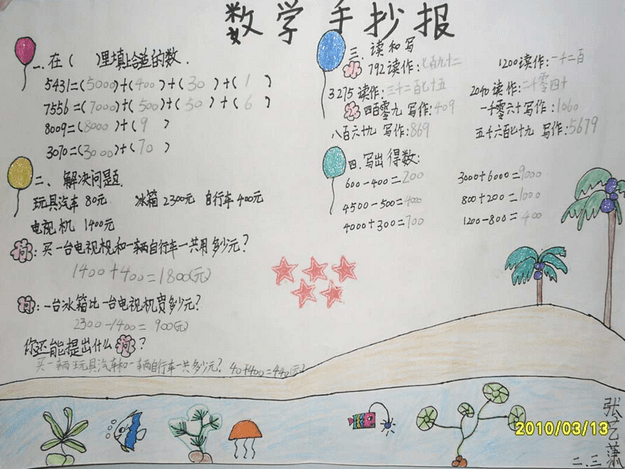 数学手抄报
一.在( )里填上合适的数.
5431=(5000)+(400)+(30)+(1)
7556=(7000)+(500)+(50)+(6)
8009=(8000)+(9)
3070=(3000)+(70)
二、解决问题.
玩具汽车 80元 冰箱 2300元 自行车 400元
电视机 1400元
问:买一台电视机和一辆自行车一共用多少元?
1400+400=1800(元)
问:一台冰箱比一台电视机贵多少元?
2300-1400=900(元)
你还能提出什么问?
买一辆玩具汽车和一辆自行车一共多少元? 40+400=440(元)
三、读和写
792 读作:七百九十二 1200 读作:一千二百
3275 读作:三千二百七十五 2040 读作:二千零四十
四百零九 写作:409 一千零六十 写作:1060
八百六十九 写作:869 五千六百七十九 写作:5679
四.写出得数:
600-400=200 3000+6000=9000
4500-500=4000 800+200=1000
4000+300=700 1200-800=400
2010/03/13
二.三